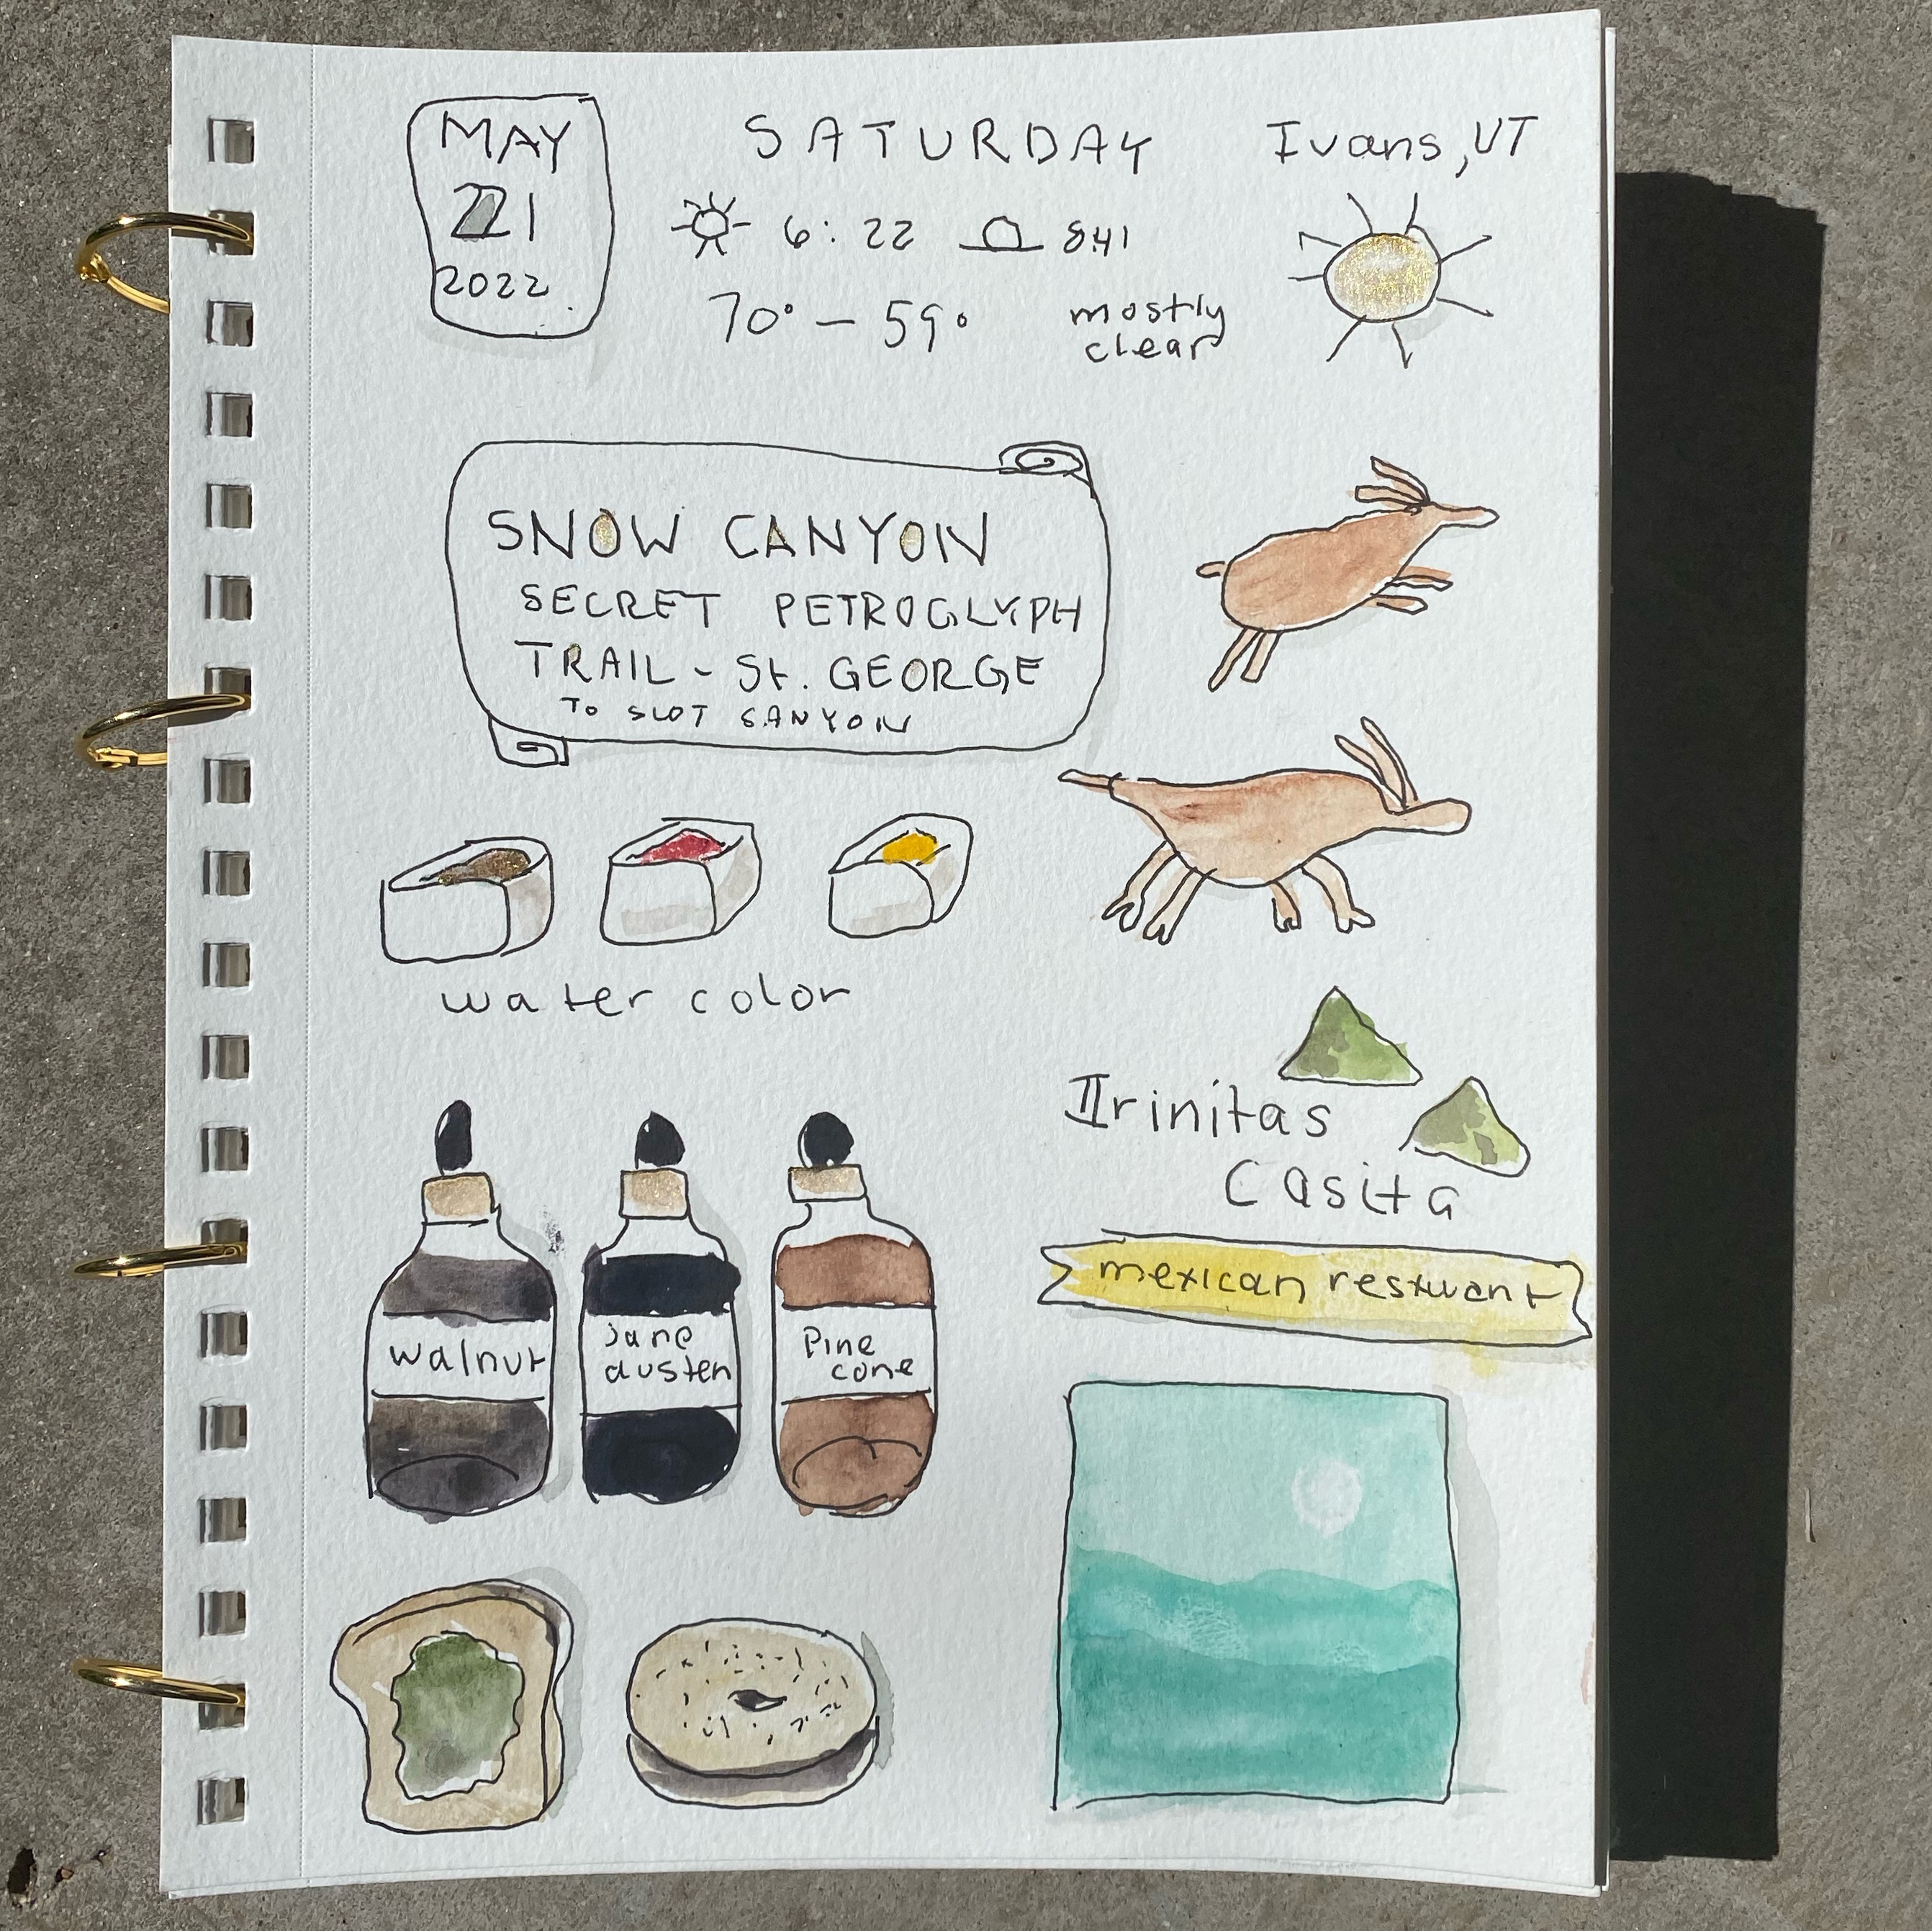 MAY
21
2022
SATURDAY
Ivans, UT
6:22
841
70° – 59°
mostly
clear
SNOW CANYON
SECRET PETROGLYPH
TRAIL - St. GEORGE
TO SLOT CANYON
water color
Irinitas
Casita
mexican restuant
walnut
jane
austen
Pine
cone